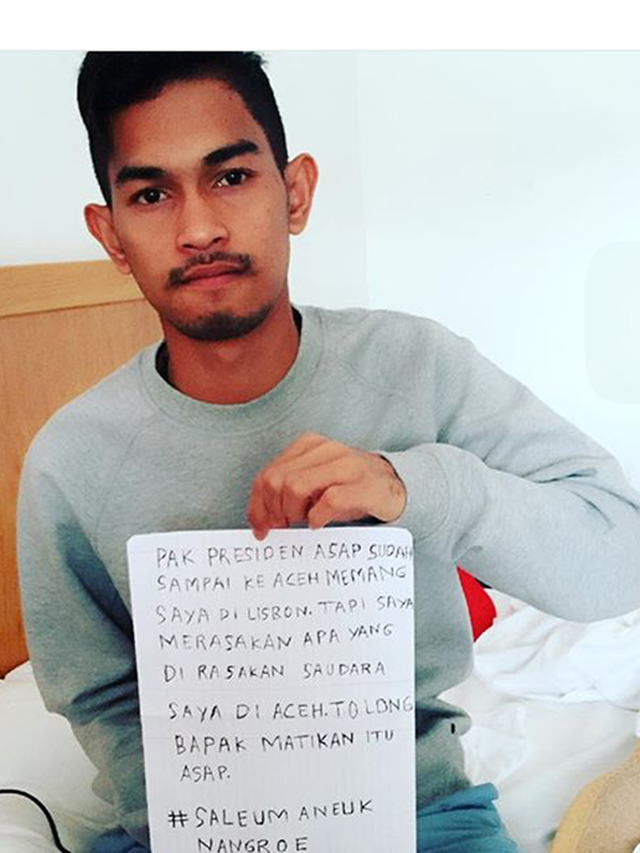 PAK PRESIDEN ASAP SUDAH
SAMPAI KE ACEH MEMANG
SAYA DI LISBON. TAPI SAYA
MERASAKAN APA YANG
DI RASAKAN SAUDARA
SAYA DI ACEH. TOLONG
BAPAK MATIKAN ITU
ASAP.
#SALEUM ANEUK
NANGROE